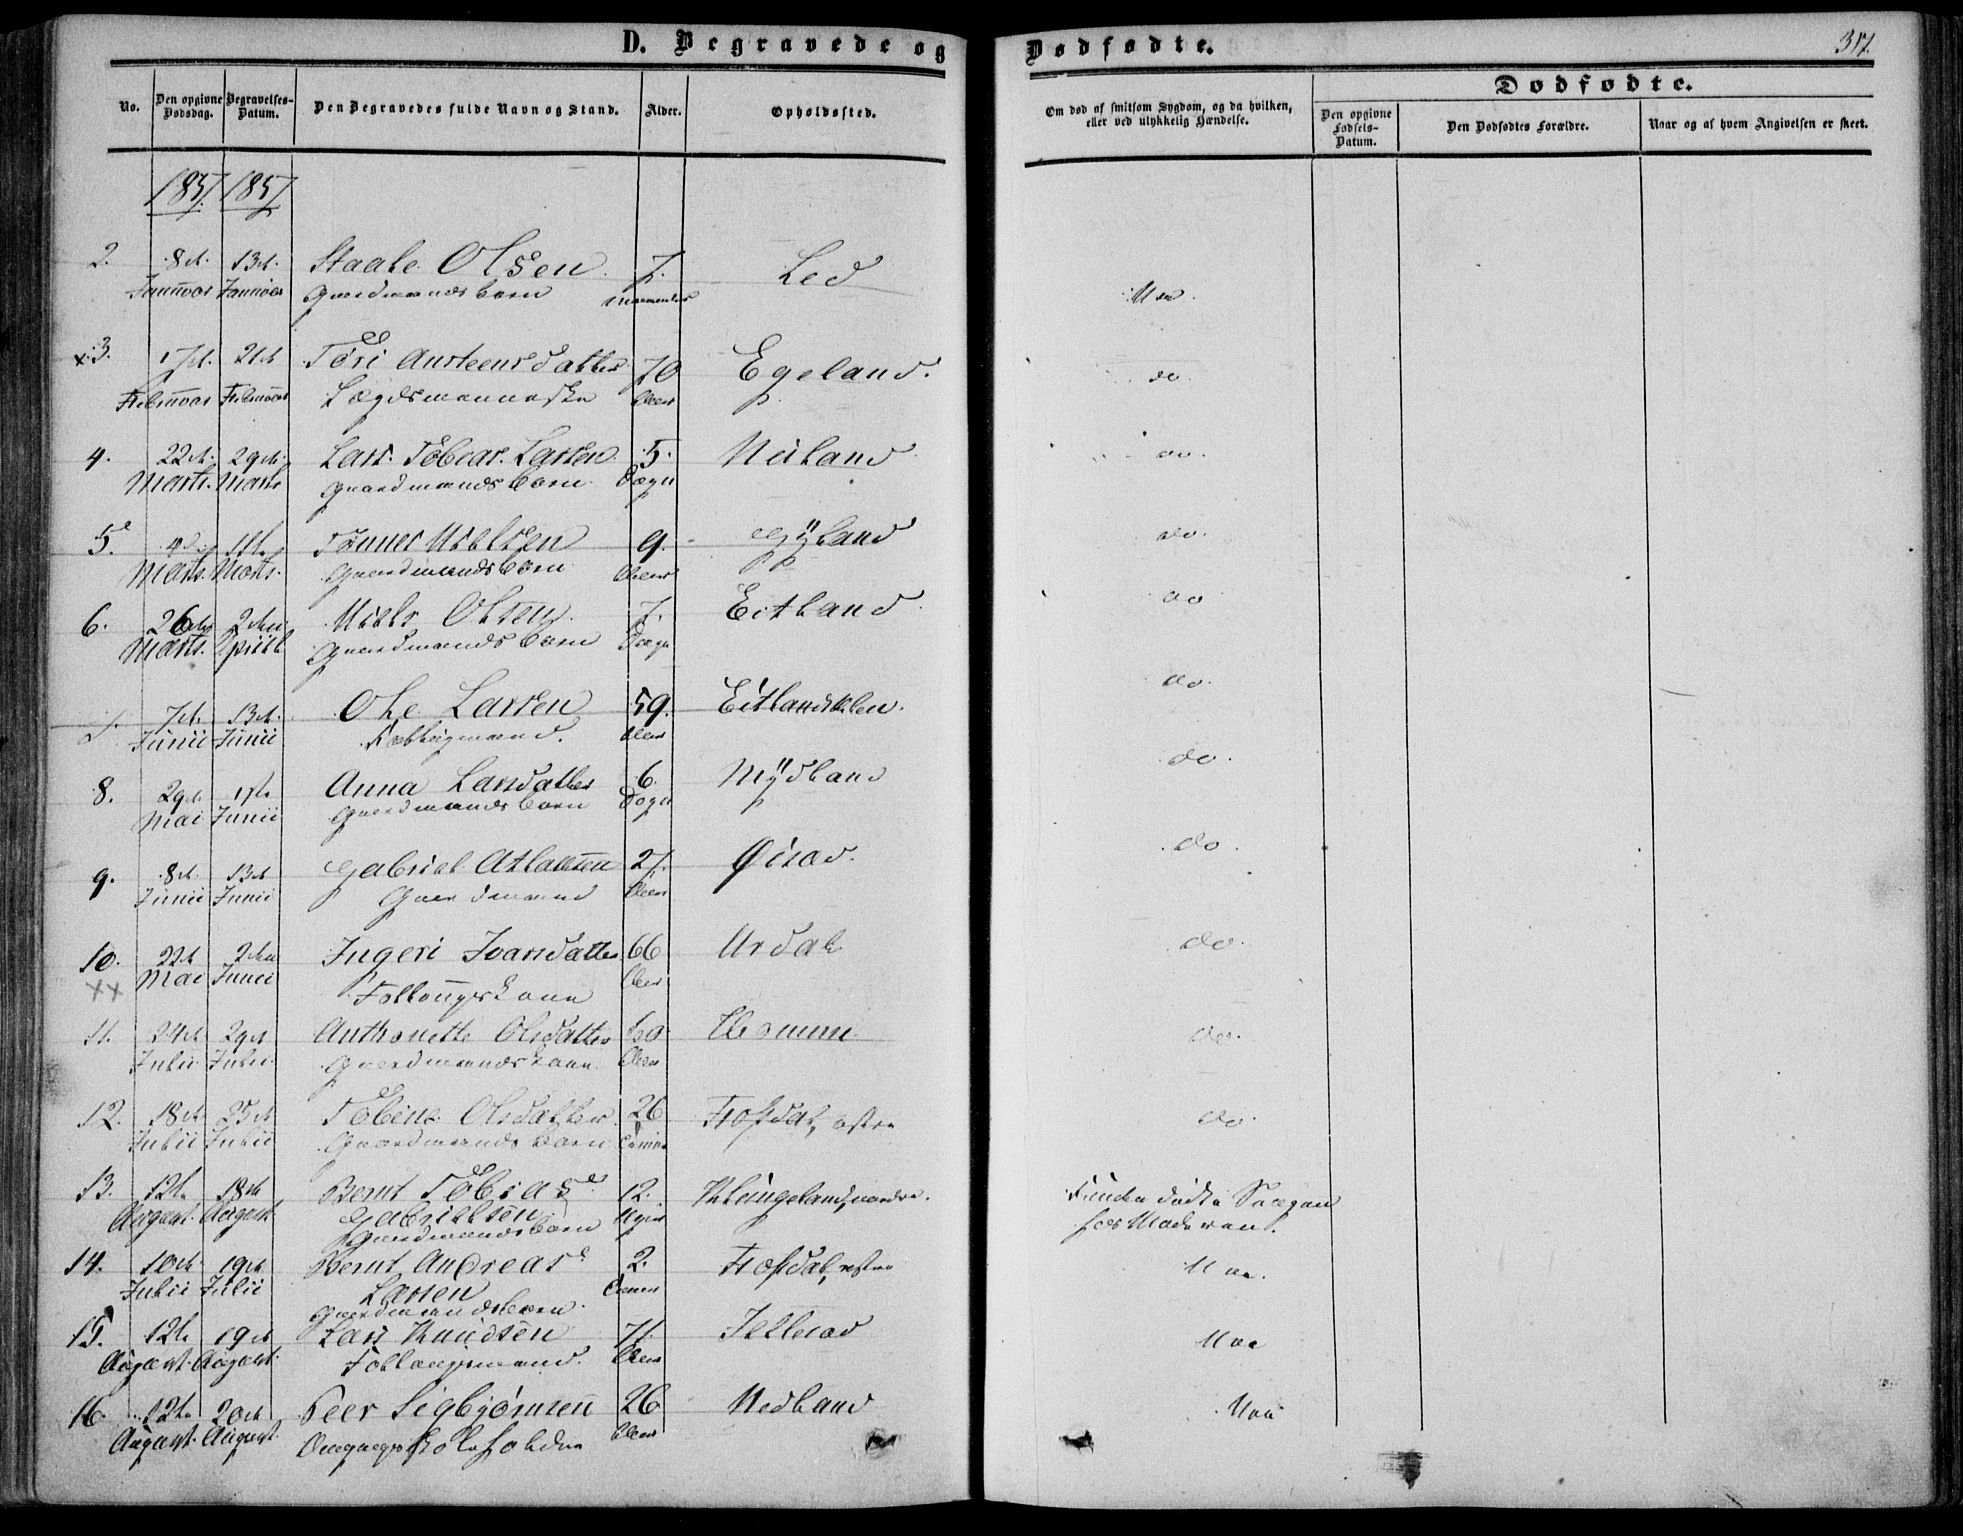 D. Begravede og Dødfødte.
317.
No.
Den opgivne Dødsdag.
Begravelses-Datum.
Den Begravedes fulde Navn og Stand.
Alder.
Opholdssted.
Om død af smitsom Sygdom, og da hvilken, eller ved ulykkelig Hændelse.
Dødfødte.
Den opgivne Fødsels-Datum.
Den Dødfødtes Forældre.
Naar og af hvem Angivelsen er skeet.
1857. 1857
2. 8de 13de Staale Olsen 7. Led
Januar Januar Gaardmandsbarn Maaneder Nei.
x 3. 17de 21de Tori Austeensdatter 70 Egeland. do.
Februar Februar Lægdsmenneske Aar
4. 22de 29de Lars Tobias Larsen 5. Neiland do.
Marts. Marts Gaardmandsbarn Døgn
5. 4de 11te Tønnes Nielsen 9. Gÿland do.
Marts. Marts. Gaardmandsbarn Aar
6. 26de 2den Niels Olsen 7. Eitland do
Marts. April Gaardmandsbarn Døgn
7. 7de 13de Ole Larsen 59. Eitlandskleu. do.
Junii Junii Fattigmand. Aar
8. 29de 1ste Anna Larsdatter 6. Mÿdland do.
Mai Junii Gaardmandsbarn Døgn
9. 8de 13de Gabriel Atlaksen 27. Øisad. do.
Junii Junii Gaardmand Aar
10. 22de 2den Ingeri Ivarsdatter 66 Urdal do.
xx Mai Junii Follougskone Aar
11. 24de 29de Anthonette Olsdatter Homme do.
Julii Julii. Gaardmandskone. Aar
12. 18de 25de Tobine Olsdatter 26 Frøsdal, østre do.
Julii Julii Gaardmandsbarn
13. 12te 18de Bernt Tobias 12. Klungeland, nordre. Funden død i Sengen
August. August. Gabrielsen Uger hos Moderen.
Gaardmandsbarn
14. 10de 19de Bernt Andreas 2. Frøsdal, østre Nei.
Julii Julii Larsen
Gaardmandsbarn.
15. 12te 19de Lars Knudsen 71. Jellesad Nei
August. August. Follougsmand. Aar
16. 12te 20de Peer Sigbjørnsen 26 Nedland Nei
August. August. Omgangsskoleholder Aar